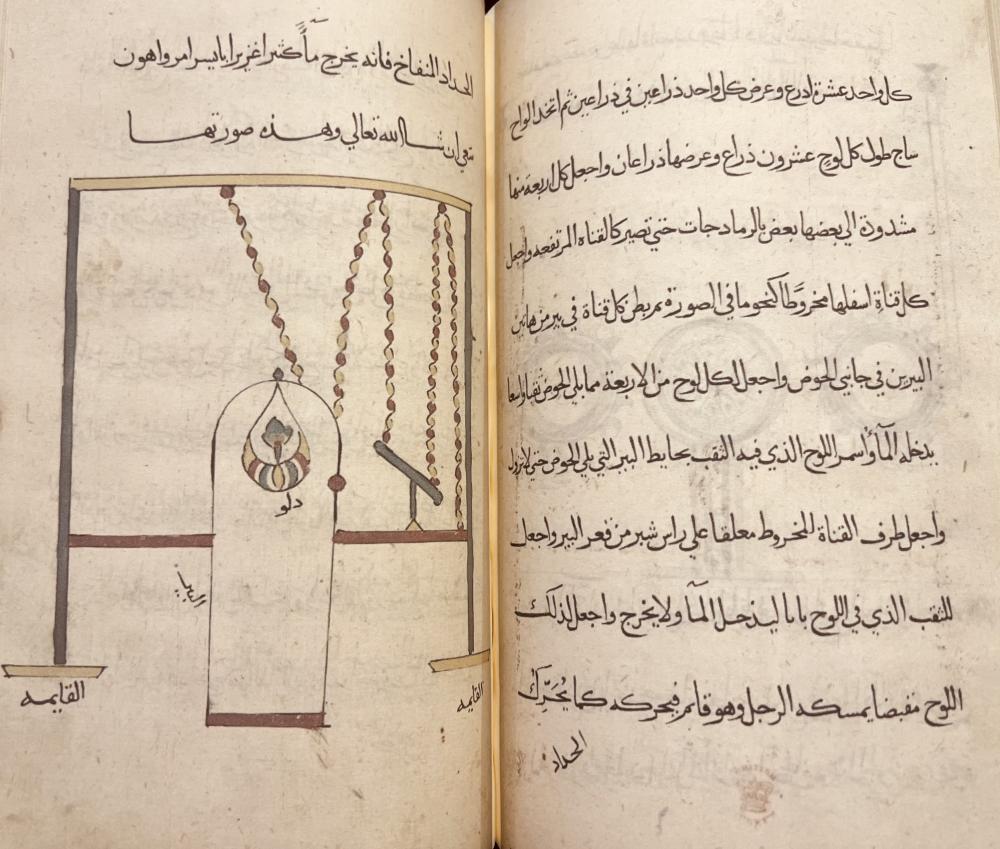 كل واحد عشرة ادرع وعرض كل واحد ذراعين في ذراعين ثم اتخد الواح
ساج طول كل لوح عشرون ذراع وعرضها ذراعان واجعل كل اربعة منها
مشدودة الي بعضها بعض بالرمادجات حتي تصير كالقناه المرتفعه واجعل
كل قناة اسفلها مخروطا كنحو ما في الصورة ثم بطن كل قناة في بير من هاتين
البيرين في جانبي الحوض واجعل لكل لوح من الاربعة مما يلي الحوض ثقبا واسعا
يدخله المآ واسمر اللوح الذي فيه الثقب بحايط البير التي يلي الحوض حتي لا تزول
واجعل طرف القناة المخروط معلقا علي راس شبر من قعر البير واجعل
للثقب الذي في اللوح بابا ليدخل المآ ولا يخرج واجعل لذلك
اللوح مقبضا يمسكه الرجل وهو قايم فيحركه كما يُحَرِّك
الحداد
الحداد المنفاخ فانه يخرج مآءً كثيرا غزيرا بايسر امر واهون
سعي ان شا الله تعالي وهذه صورتها
دلو
القايمه
القايمه